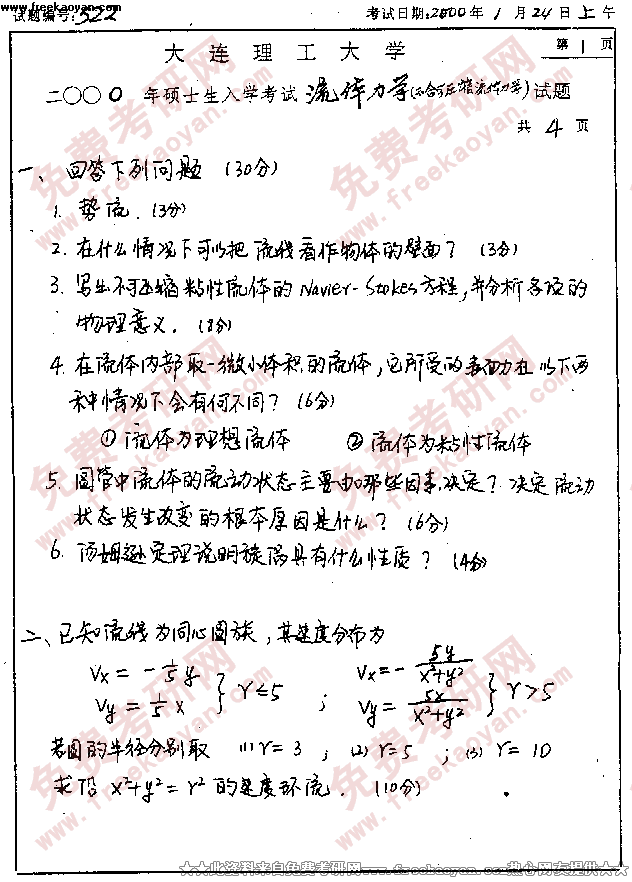 www.freekaoyan.com
试题编号:322 考试日期:2000年1月24日上午
大连理工大学 第1页
二〇〇0年硕士生入学考试 流体力学(不含可压缩流体力学)试题
共4页
一、回答下列问题 (30分)
1. 势流. (3分)
2. 在什么情况下可以把流线看作物体的壁面? (3分)
3. 写出不可压缩粘性流体的Navier-Stokes方程,并分析各项的
物理意义. (8分)
4. 在流体内部取一微小体积的流体,它所受的表面力在以下两
种情况下会有何不同? (6分)
①流体为理想流体 ②流体为粘性流体
5. 圆管中流体的流动状态主要由那些因素决定? 决定流动
状态发生改变的根本原因是什么? (6分)
6. 汤姆逊定理说明旋涡具有什么性质? (4分)
二、已知流线为同心圆族,其速度分布为
Vx = -1/5 y
Vy = 1/5 x } r≤5 ; Vx = - 5y/(x²+y²)
Vy = 5x/(x²+y²) } r>5
若圆的半径分别取 (1) r=3 ; (2) r=5 ; (3) r=10
求沿 x²+y²=r² 的速度环流. (10分)
★★此资料来自免费考研网www.freekaoyan.com热心网友提供★☆
免费考研网
www.freekaoyan.com